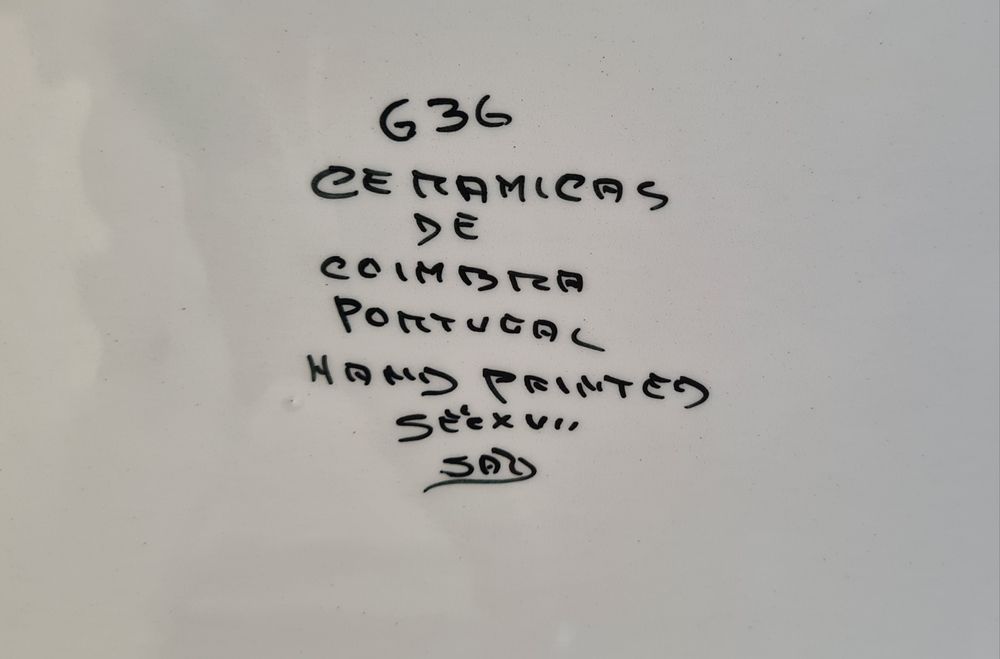 636
CERAMICAS
DE
COIMBRA
PORTUGAL
HAND PRINTED
SÉCXVII